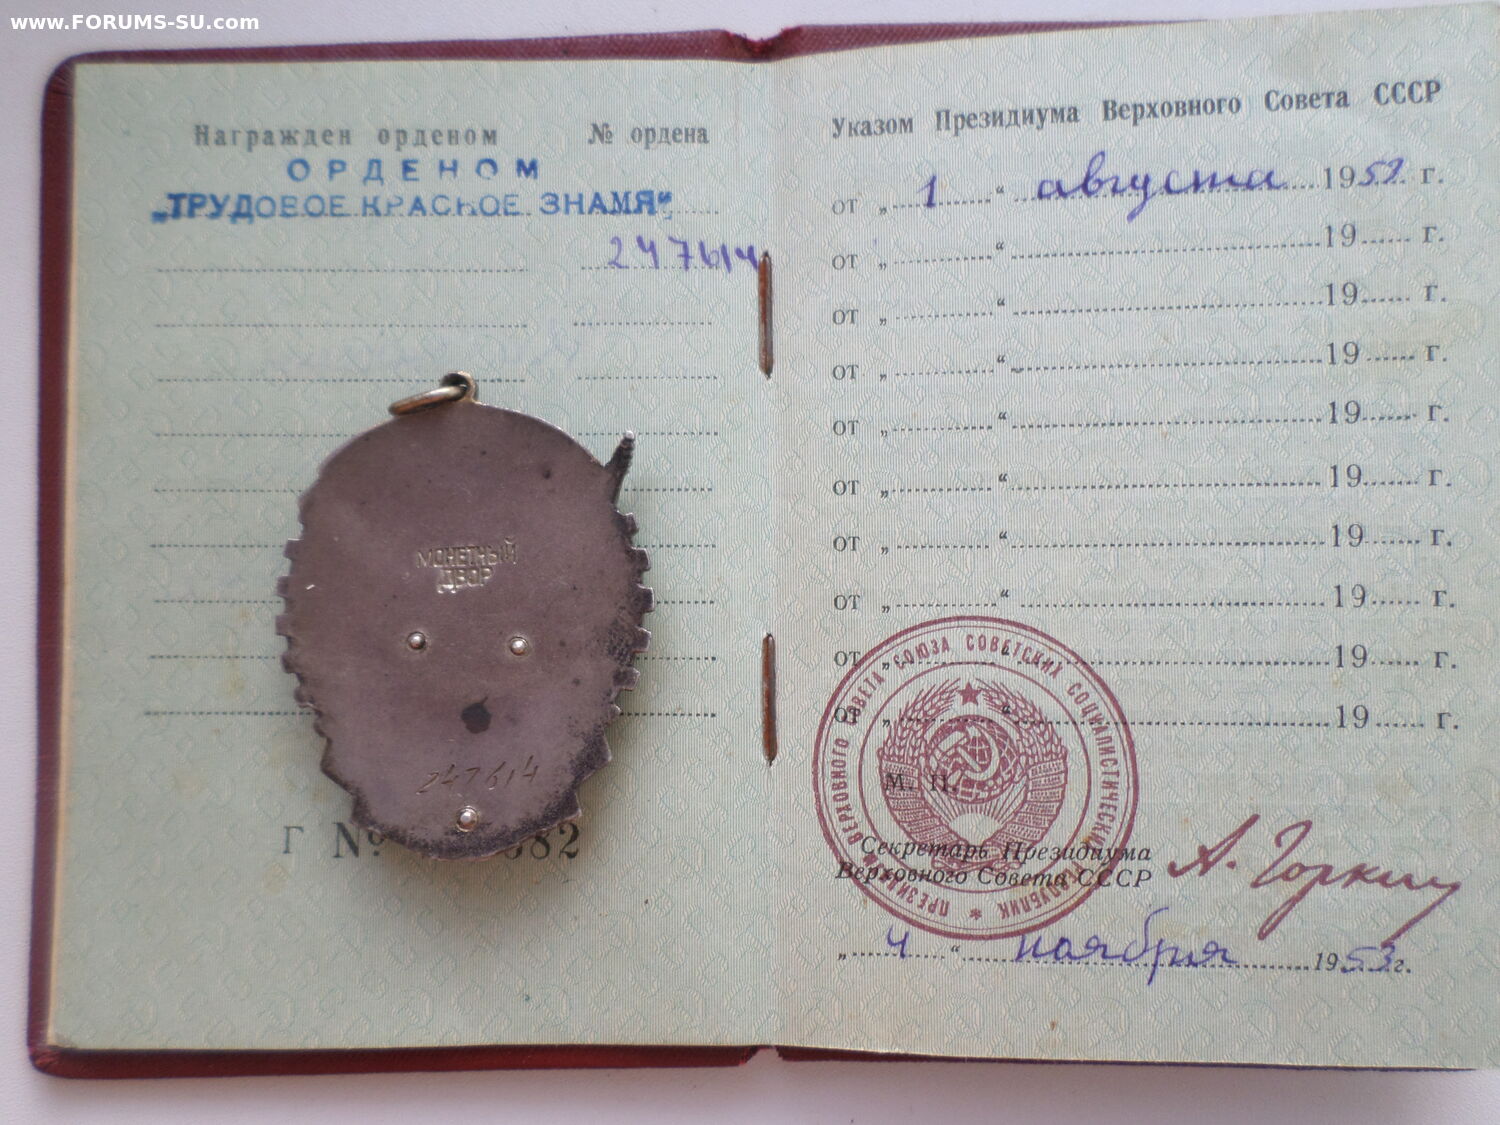 www.FORUMS-SU.com
Награжден орденом № ордена
ОРДЕНОМ
„ТРУДОВОЕ КРАСНОЕ ЗНАМЯ“
247614
МОНЕТНЫЙ
ДВОР
247614
Г № 382
Указом Президиума Верховного Совета СССР
от „ 1 “ августа 1952 г.
от „ “ 19 г.
от „ “ 19 г.
от „ “ 19 г.
от „ “ 19 г.
от „ “ 19 г.
от „ “ 19 г.
от „ “ 19 г.
от „ “ 19 г.
от „ “ 19 г.
ПРЕЗИДИУМ ВЕРХОВНОГО СОВЕТА СОЮЗА СОВЕТСКИХ СОЦИАЛИСТИЧЕСКИХ РЕСПУБЛИК
М. П.
Секретарь Президиума
Верховного Совета СССР
А. Горкин
„ 4 “ ноября 1953 г.